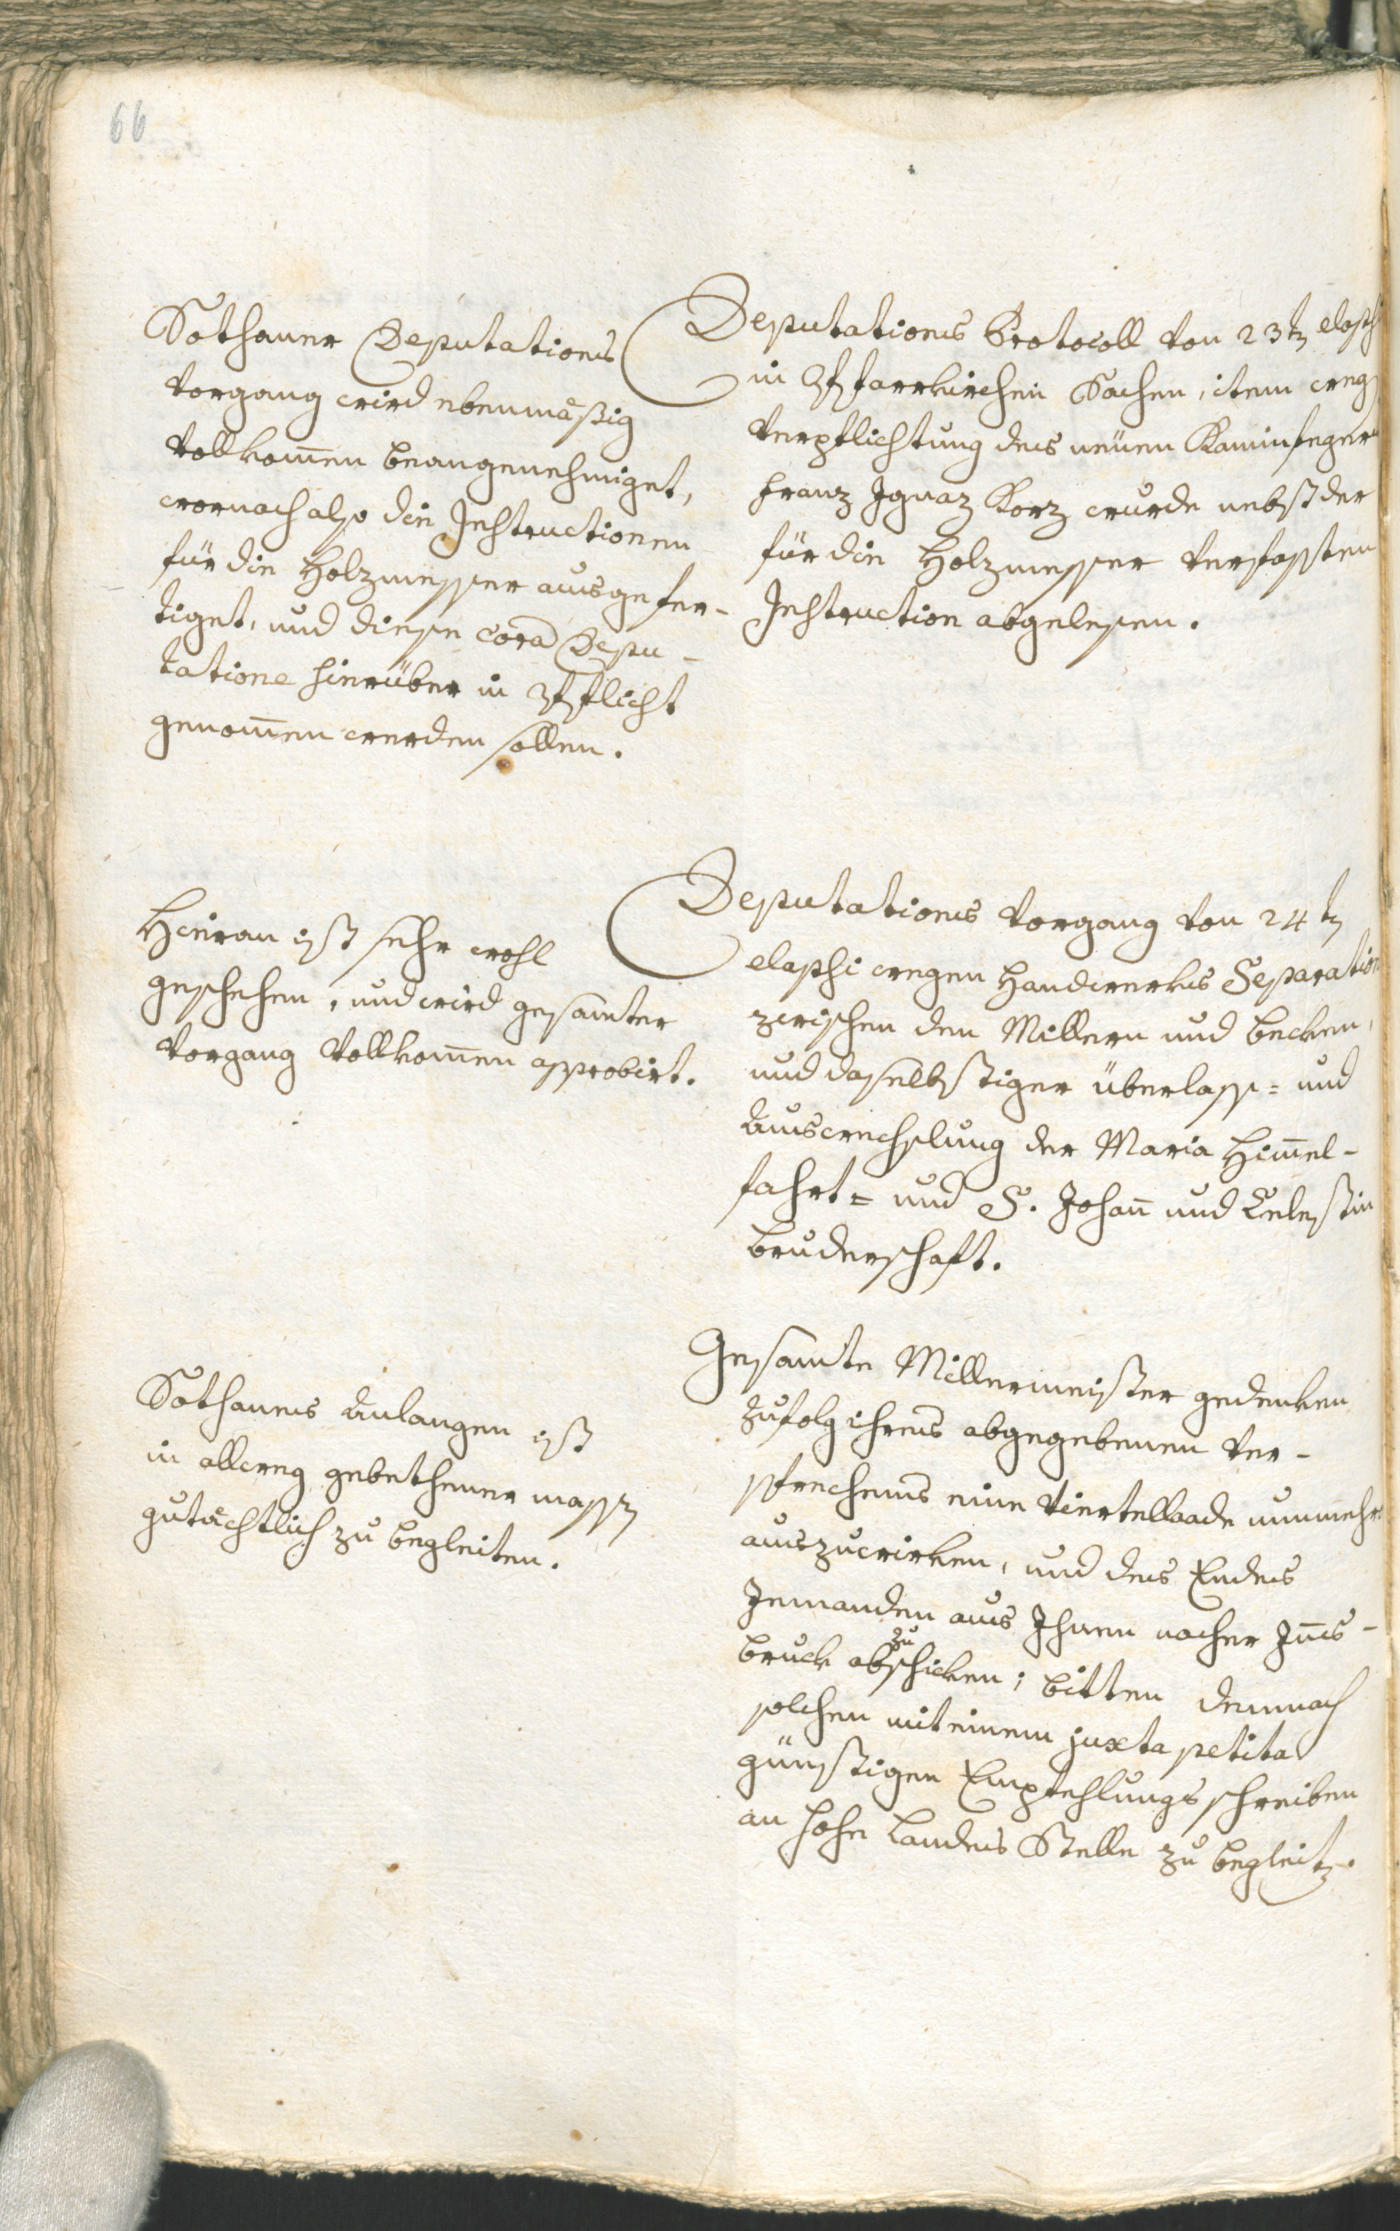 66
Deputations Protocoll von 23tn elapsi
in Pfarrkirchen Sachen, item weg
Verpflichtung des neuen Kaminfegers
Franz Ignaz Korz wurde nebst der
für die Holzmesser verfassten
Instruction abgelesen.
Sothaner Deputations
Vorgang wird ebenmäßig
vollkom̄en beangenehmiget,
wornach also die Instructionen
für die Holzmesser ausgefer-
tiget, und diese corā Depu-
tatione hierüber in Pflicht
genom̄en werden sollen.
Deputations Vorgang von 24tn
elapsi wegen Handwerks Separation
zwischen den Millern und Becken,
und daselbstiger überlass= und
Auswechslung der Maria Him̄el-
fahrt= und S. Johan̄ und Celestin
Bruderschaft.
Hieran ist sehr wohl
geschehen, und wird gesamter
Vorgang vollkom̄en approbirt.
Gesamte Millermeister gedenken
zufolg ihres abgegebenen Ver-
sprechens eine Viertellaade nunmehr
auszuwirken, und des Endes
Jemanden aus Ihnen nacher In̄s-
bruck abzuschicken; bitten demnach
solchen mit einem juxta petita
günstigen Empfehlungsschreiben
an hohe Landes Stelle zu begleitn.
Sothanes Anlangen ist
in allweg gebethener massn
gutächtlich zu begleiten.